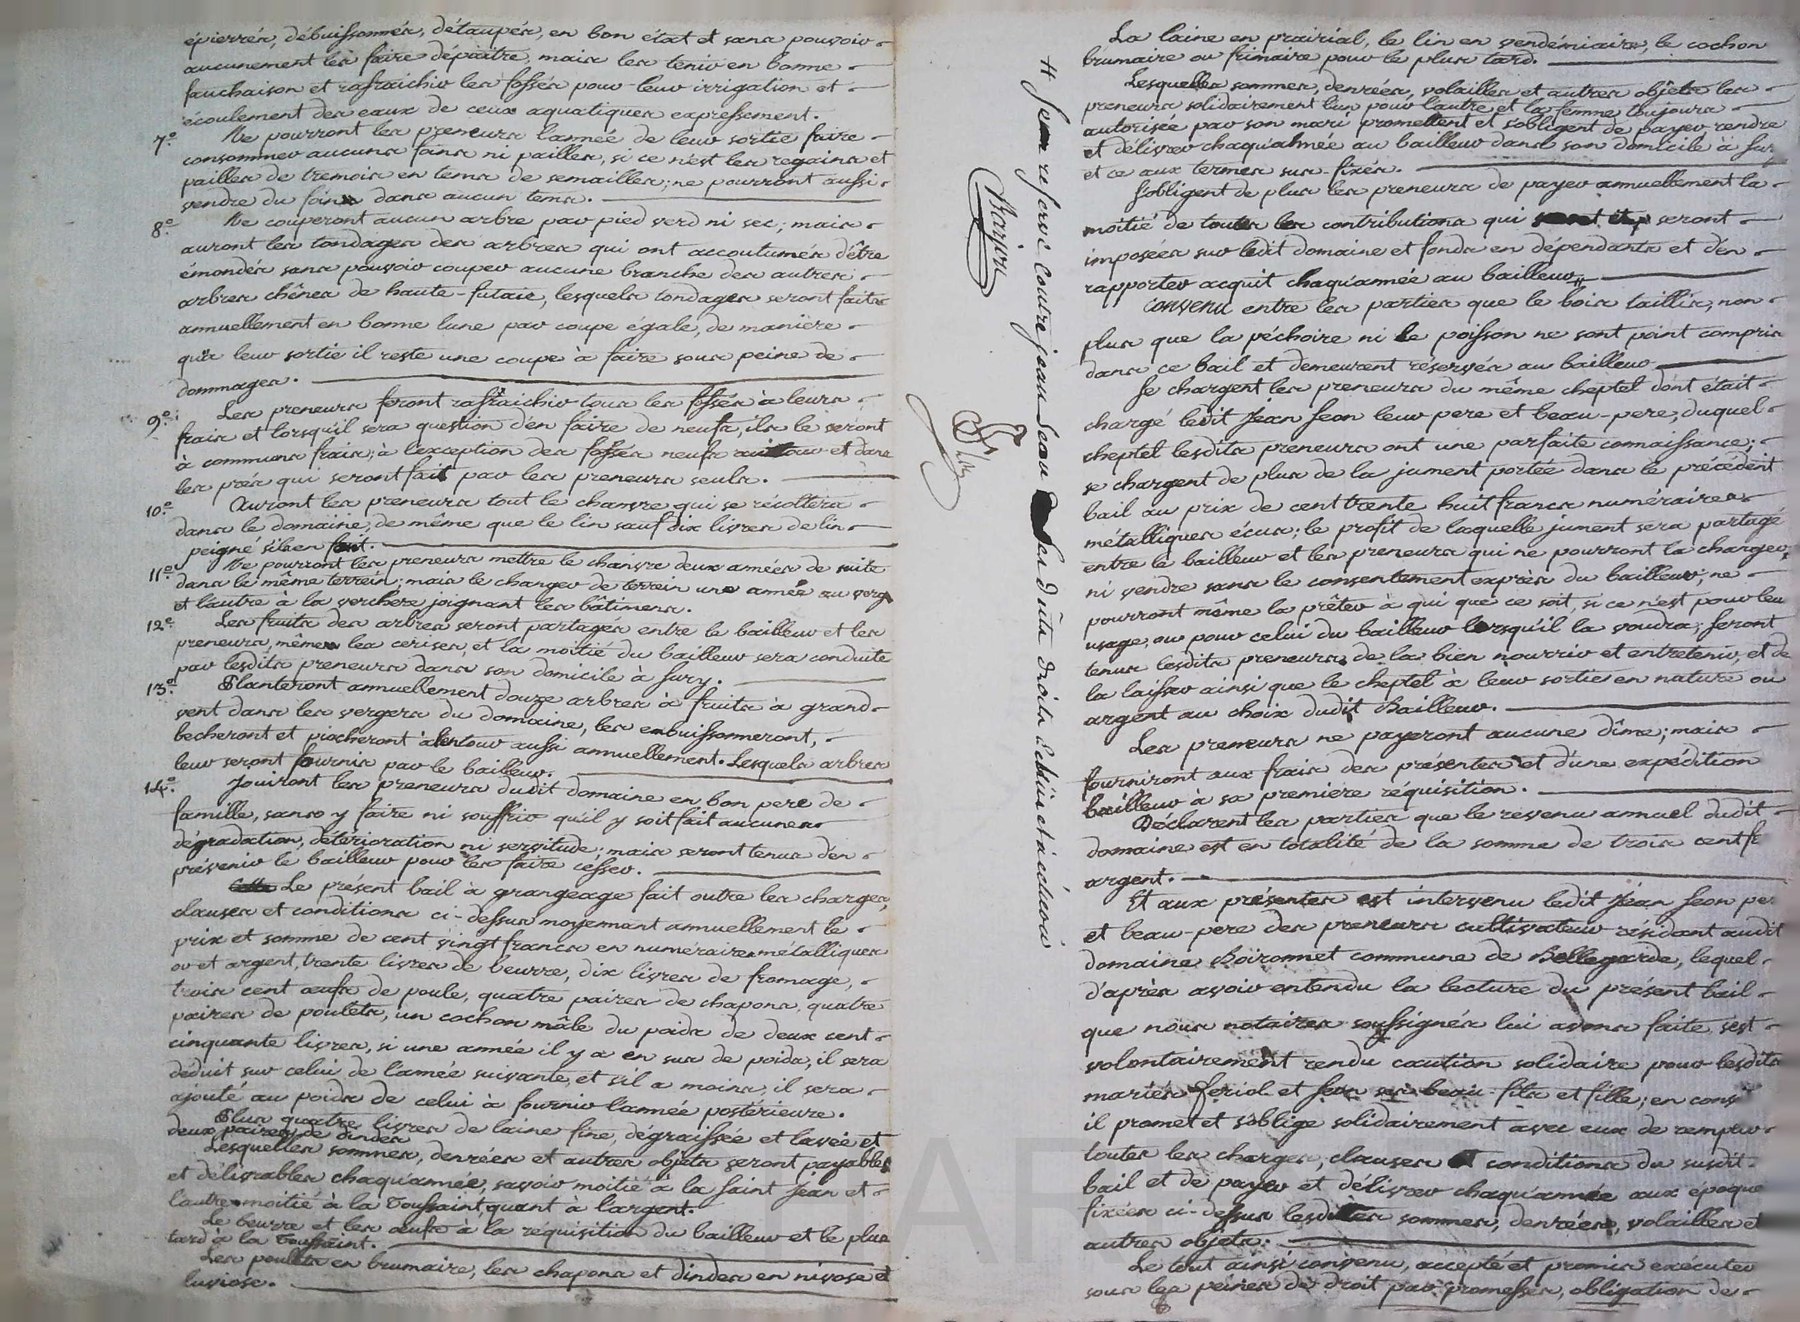 épierrés, débuissonnés, détaupés, en bon état et sans pouvoir
aucunement les faire dépaître, mais les tenir en bonne
fauchaison et rafraichir les fossés pour leur irrigation et
écoulement des eaux de ceux aquatiques expressement.
7.e Ne pourront les preneurs l'année de leur sortie faire
consommer aucuns foins ni pailles, si ce n'est les regains et
pailles de tremois en tems de semailles; ne pourront aussi
vendre du foin dans aucun tems.
8.e Ne couperont aucun arbre par pied verd ni sec; mais
auront les tondages des arbres qui ont accoutumés d'être
émondés sans pouvoir couper aucune branche des autres
arbres chênes de haute-futaie, lesquels tondages seront faits
annuellement en bonne lune par coupe égale, de manière
qu'à leur sortie il reste une coupe à faire sous peine de
dommages.
9.e Les preneurs feront rafraichir tous les fossés à leurs
frais et lorsqu'il sera question d'en faire de neufs, ils le seront
à communs frais; à l'exception des fossés neufs autour et dans
les prés qui seront fait par les preneurs seuls.
10.e Auront les preneurs tout le chanvre qui se récoltera
dans le domaine, de même que le lin sauf dix livres de lin
peigné s'ils en font.
11.e Ne pourront les preneurs mettre le chanvre deux années de suite
dans le même terrein; mais le changer de terrein une année au verg
et l'autre à la verchere joignant les bâtimens.
12.e Les fruits des arbres seront partagés entre le bailleur et les
preneurs, même les cerises, et la moitié du bailleur sera conduite
par lesdits preneurs dans son domicile à Sury.
13.e Planteront annuellement douze arbres à fruits à grand
vent dans les vergers du domaine, les embuissonneront,
becheront et piocheront à l'entour aussi annuellement. Lesquels arbres
leur seront fournis par le bailleur.
14.e Jouiront les preneurs dudit domaine en bon pere de
famille, sans y faire ni souffrir qu'il y soit fait aucunes
dégradation, détérioration ni servitude; mais seront tenus d'en
prévenir le bailleur pour les faire cesser.
Le présent bail à grangeage fait outre les charges,
clauses et conditions ci-dessus moyennant annuellement le
prix et somme de cent vingt francs en numéraires métalliques
or et argent, trente livres de beurre, dix livres de fromage,
trois cent œufs de poule, quatre paires de chapons, quatre
paires de poulets, un cochon mâle du poids de deux cent
cinquante livres, si une année il y a en sus de poids, il sera
déduit sur celui de l'année suivante, et s'il a moins, il sera
ajouté au poids de celui à fournir l'année postérieure.
Plus quatre livres de laine fine, dégraissée et lavée et
deux paires de dindes
Lesquelles sommes, denrées et autres objets seront payables
et délivrables chaqu'année, savoir moitié à la Saint Jean et
l'autre moitié à la Toussaint quant à l'argent.
Le beurre et les œufs à la requisition du bailleur et le plus
tard à la Toussaint.
Les poulets en brumaire, les chapons et dindes en nivose et
luviose.
# Sera reservé contre jean Jean les dits droits échûs et à échoir
La laine en prairial, le lin en vendémiaire, le cochon
brumaire ou frimaire pour le plus tard.
Lesquelles sommes, denrées, volailles et autres objets les
preneurs solidairement l'un pour l'autre et la femme toujours
autorisée par son mari promettent et s'obligent de payer, rendre
et délivrer chaqu'année au bailleur dans son domicile à Sury
et ce aux termes sus-fixés.
S'obligent de plus les preneurs de payer annuellement la
moitié de toutes les contributions qui seront
imposées sur ledit domaine et fonds en dépendants et d'en
rapporter acquit chaqu'année au bailleur #
Convenu entre les parties que le bois taillis, non
plus que la péchoire ni le poisson ne sont point compris
dans ce bail et demeurent réservés au bailleur
Se chargent les preneurs du même cheptel dont était
chargé ledit Jean Jean leur pere et beau-pere, duquel
cheptel lesdits preneurs ont une parfaite connaissance;
se chargent de plus de la jument portée dans le précédent
bail au prix de cent trente huit francs numéraires
métalliques écus; le profit de laquelle jument sera partagé
entre le bailleur et les preneurs qui ne pourront la changer
ni vendre sans le consentement exprès du bailleur; ne
pourront même la prêter à qui que ce soit, si ce n'est pour leu
usage, ou pour celui du bailleur lorsqu'il la voudra; seront
tenus lesdits preneurs de la bien nourrir et entretenir, et de
la laisser ainsi que le cheptel à leur sortie en nature ou
argent au choix dudit Bailleur.
Les preneurs ne payeront aucune dîme; mais
fourniront aux frais des présentes et d'une expédition
bailleur à sa premiere réquisition.
Déclarent les parties que le revenu annuel dudit
domaine est en totalité de la somme de trois cent f
argent.
Et aux présentes est intervenu ledit Jean Jean per
et beau-pere des preneurs cultivateur résidant audit
domaine Boironnet commune de Bellegarde, lequel
d'après avoir entendu la lecture du présent bail
que nous notaires soussignés lui avons faite, s'est
volontairement rendu caution solidaire pour lesdits
mariés Feriol et Jean ses beau-fils et fille; en cons
il promet et s'oblige solidairement avec eux de remplir
toutes les charges, clauses et conditions du susdit
bail et de payer et délivrer chaqu'année aux époque
fixées ci-dessus lesdites sommes, denrées, volailles et
autres objets.
Le tout ainsi convenu, accepté et promis exécuter
sous les peines de droit par promesses, obligation de